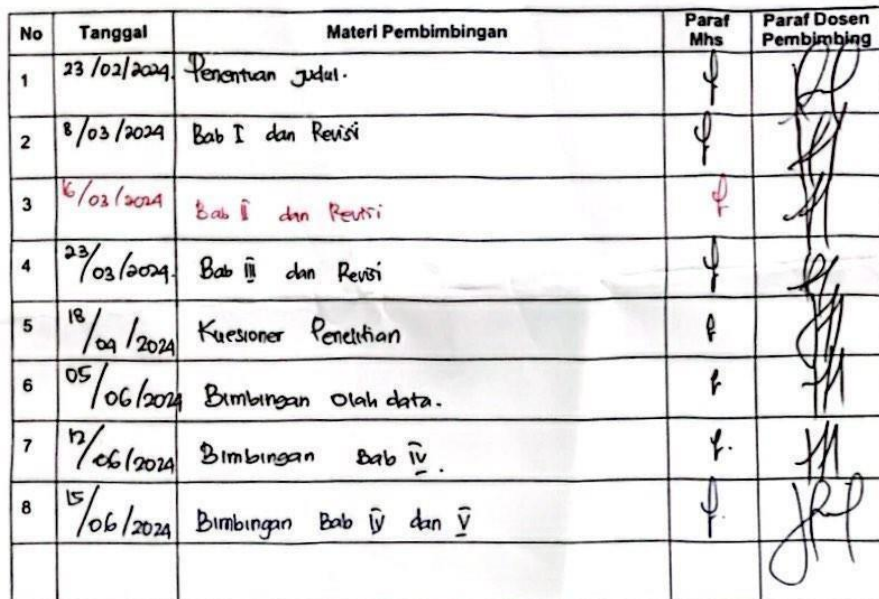 No Tanggal Materi Pembimbingan Paraf Mhs Paraf Dosen Pembimbing
1 23/02/2024. Penentuan judul.
2 8/03/2024 Bab I dan Revisi
3 16/03/2024 Bab II dan Revisi
4 23/03/2024. Bab III dan Revisi
5 18/04/2024 Kuesioner Penelitian
6 05/06/2024 Bimbingan Olah data.
7 12/06/2024 Bimbingan Bab IV.
8 15/06/2024 Bimbingan Bab IV dan V